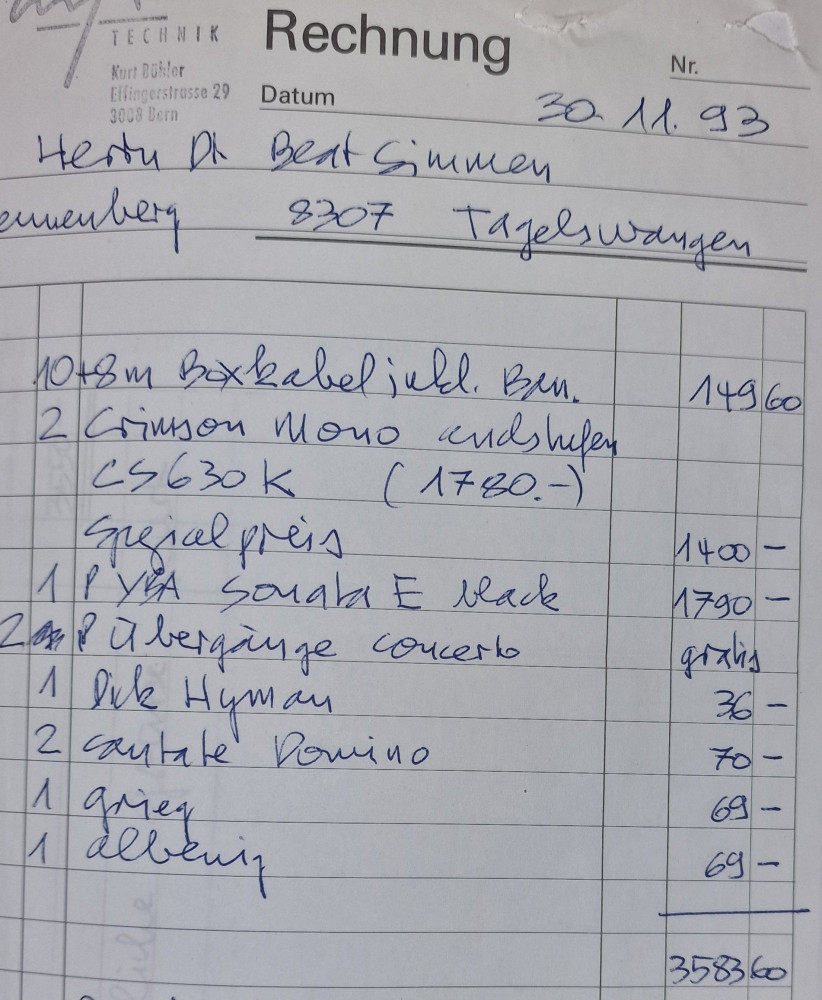 TECHNIK
Rechnung
Kurt Bühler
Effingerstrasse 29
3008 Bern
Nr.
Datum 30.11.93
Herrn Dr. Beat Simmen
8307 Tagelswangen
10+8m Boxkabel inkl. Ban. 149 60
2 Crimson Mono endstufen
CS630K (1780.-)
Spezialpreis 1400 –
1 P YBA Sonata E black 1790 –
2 P Übergänge concerto gratis
1 Dick Hyman 36 –
2 cantate Domino 70 –
1 grieg 69 –
1 albeniz 69 –
3583 60